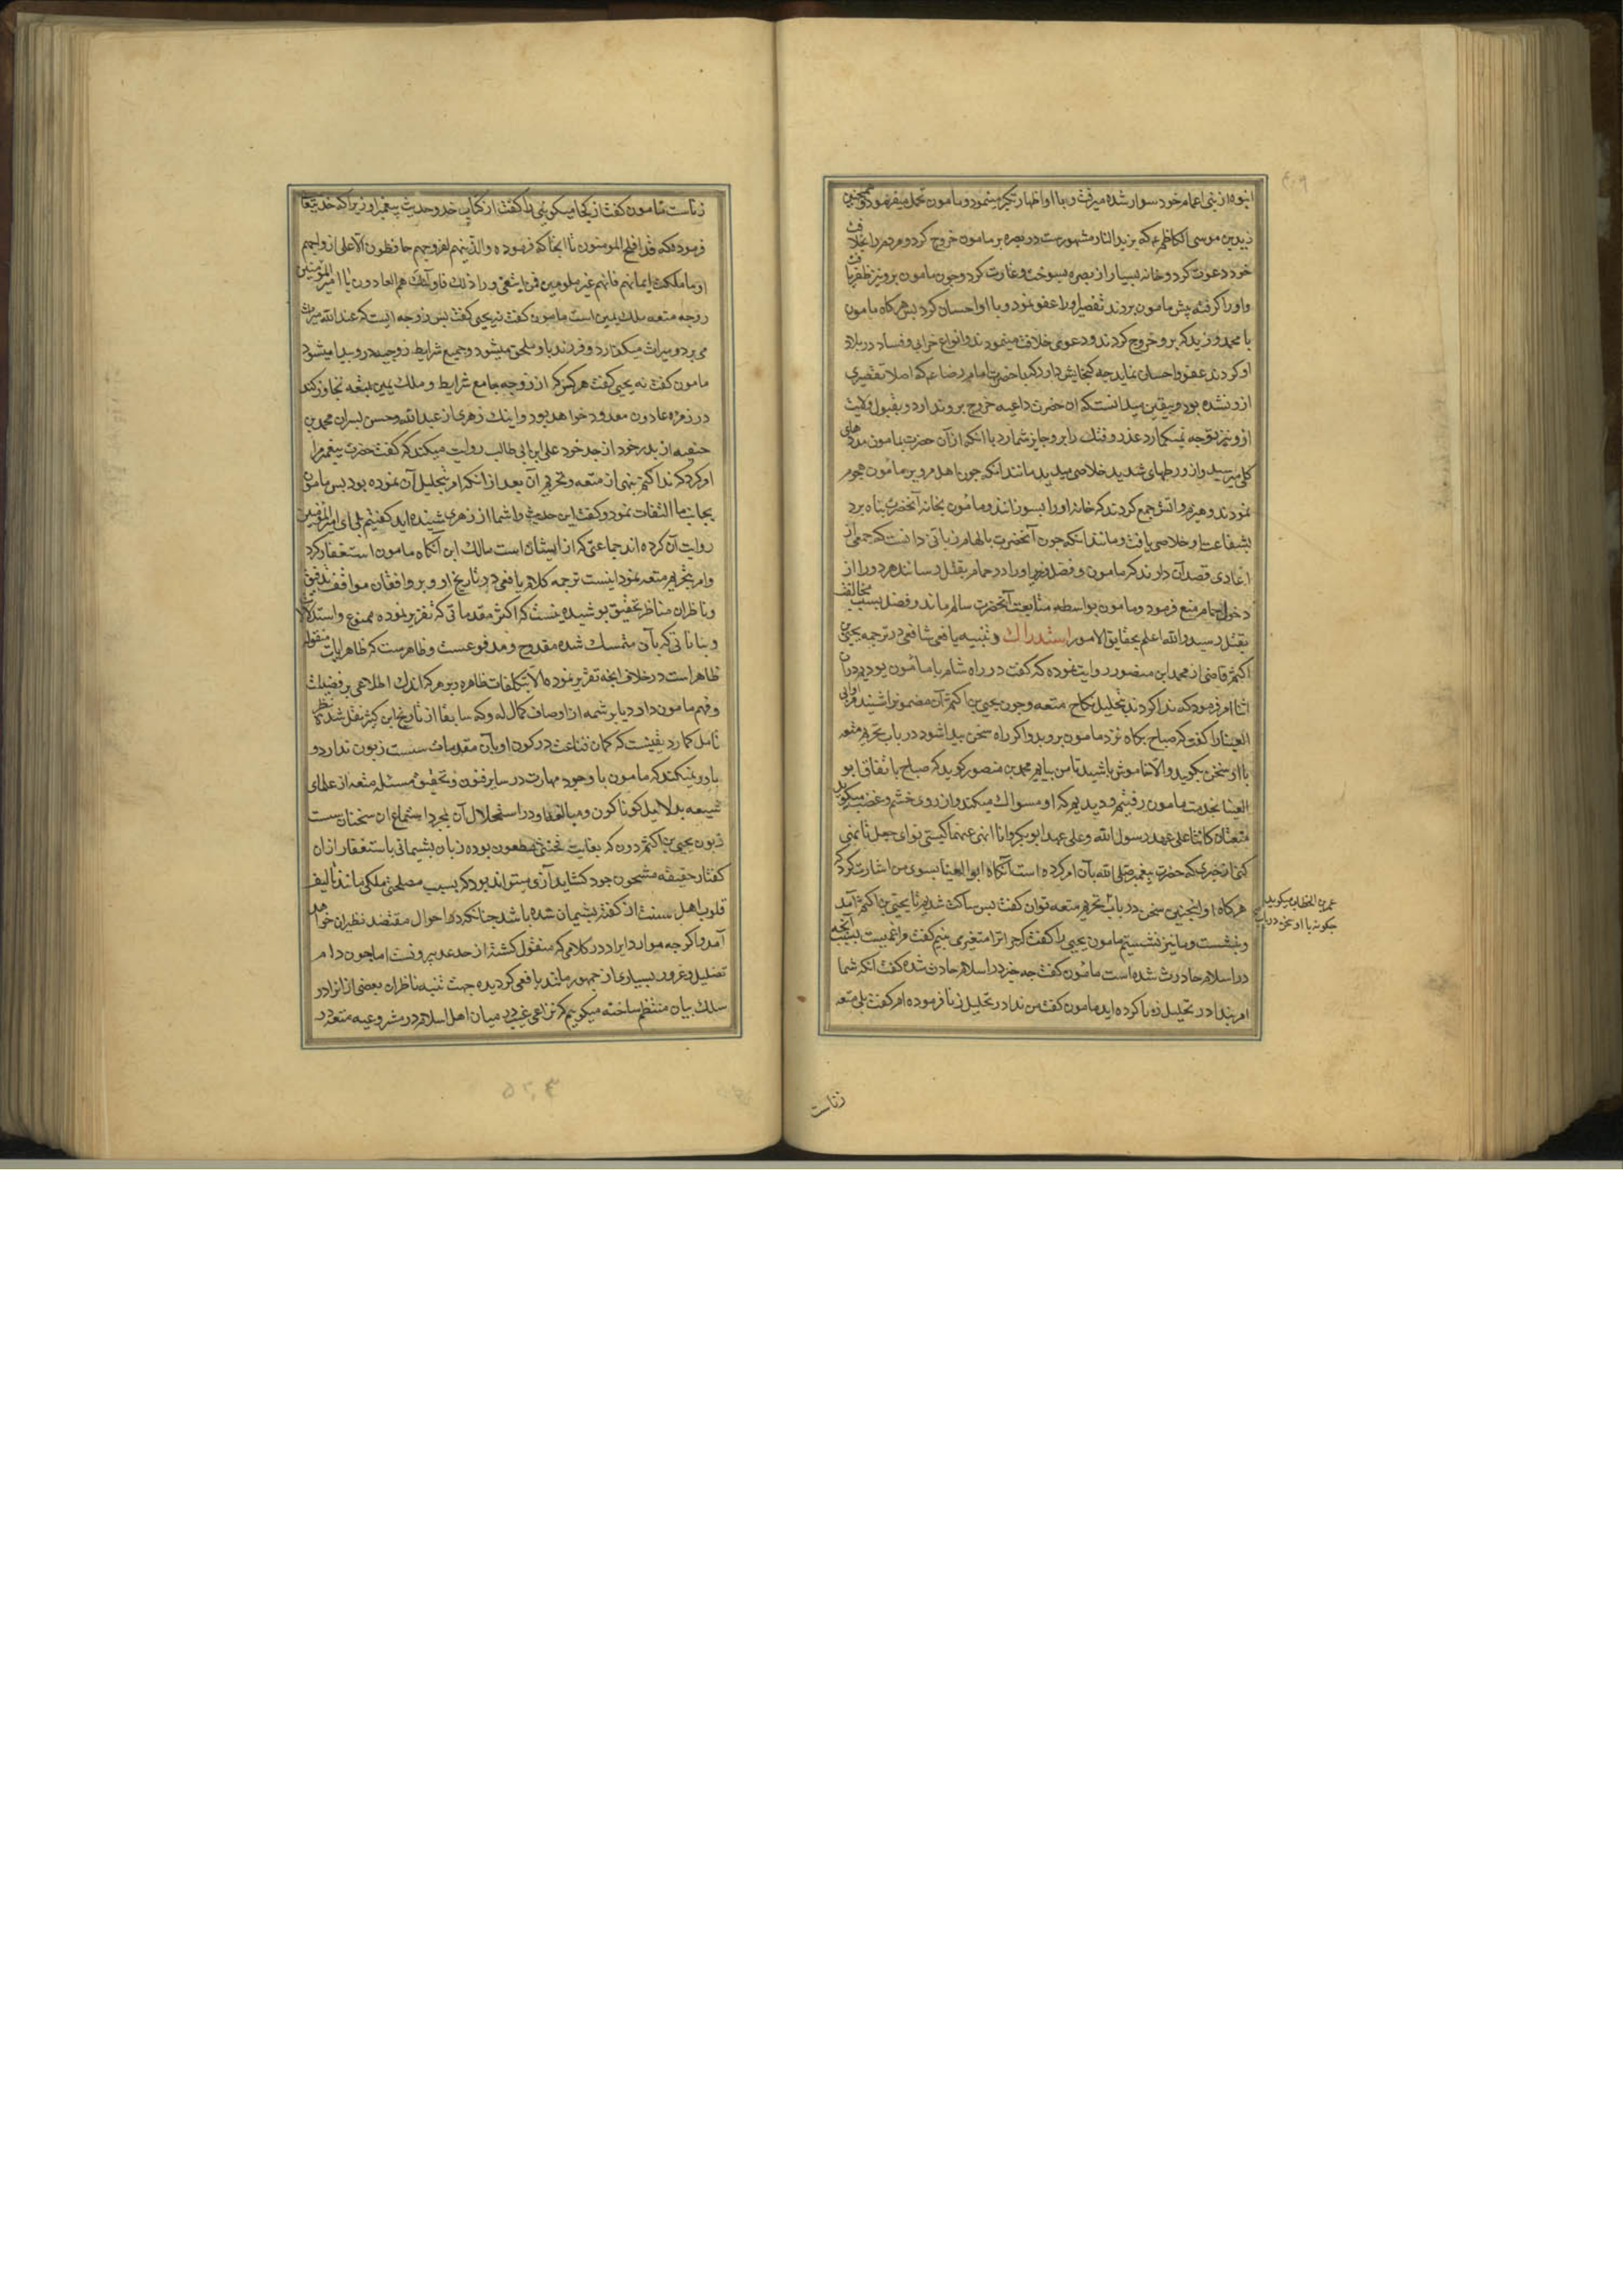 انبوه از بنی اعمام خود سوار شده میرفت و با او اظهار تکبر مینمود و مامون تحمل میفرمود و همچنین
زید بن موسی الکاظم ع که بزید النار مشهورست در بصره بر مامون خروج کرد و مردم را بخلافت
خود دعوت کرد و خانه بسیار از بصره بسوخت و غارت کرد و چون مامون برو نیز ظفر یافت
و او را گرفته پیش مامون بردند تقصیر او را عفو نمود و با او احسان کرد پس هرگاه مامون
با محمد و زید که برو خروج کردند و دعوی خلافت مینمودند و انواع خرابی و فساد در بلاد
او کردند عفو و احسان نماید چه گنجایش دارد که با حضرت امام رضا ع که اصلا تقصیری
ازو نشده بود و بیقین میدانست که ان حضرت داعیه خروج برو ندارد و بقبول ولایت
ازو نیز توجه نمیگمارد غدر و فتک را برو جایز شمارد با آنکه از آن حضرت بمامون مددهای
کلی میرسید و از ورطهای شدید خلاصی میدید مانند آنکه چون اهل مرو بر مامون هجوم
نمودند و هیزم و آتش جمع کردند که خانه او را بسوزانند و مامون بخانه آنحضرت پناه برد
بشفاعت او خلاصی یافت و مانند انکه چون آنحضرت بالهام ربانی دانست که جمعی از
اعادی قصد آن دارند که مامون و فضل وزیر او را در حمام بقتل رسانند هر دو را از
دخول حمام منع فرمود و مامون بواسطه متابعت آنحضرت سالم ماند و فضل بسبب مخالفت
بقتل رسید و الله اعلم بحقایق الامور استدراک و تنبیه یافعی شافعی در ترجمه یحیی بن
اکثم قاضی از محمد ابن منصور روایت نموده که گفت در راه شام با مامون بودیم در آن
اثنا امر فرمود که ندا کردند بتحلیل نکاح متعه و چون یحیی بن اکثم آن مضمون را شنید مرا و ابی
العینا را گفت که صباح پگاه نزد مامون بروید و اگر راه سخن پیدا شود در باب تحریم متعه
با او سخن بگویید و الا خاموش باشید تا من بیایم محمد بن منصور گوید که صباح باتفاق ابو
العینا بخدمت مامون رفتیم و دیدیم که او مسواک میکند و از روی خشم و غضب میگوید
متعتان کانتا علی عهد رسول الله و علی عهد ابوبکر و انا انهی عنهما کیستی تو ای جعل تا نهی
کنی از چیزی که حضرت پیغمبر صلی الله بآن امر کرده است آنگاه ابو العینا بسوی من اشارت کرد که
هرگاه او اینچنین سخن در باب تحریم متعه توان گفت پس ساکت شدیم تا یحیی بن اکثم آمد
و بنشست و ما نیز نشستیم مامون یحیی را گفت که چرا ترا متغیر می بینم گفت مرا غمیست بسبب آنچه
در اسلام حادث شده است مامون گفت چه چیز در اسلام حادث شده گفت آنکه شما
امر بندا در تحلیل زنا کرده اید مامون گفت من ندا در تحلیل زنا فرموده ام گفت بلی متعه
عمر بن الخطاب میگوید
چگونه با او سخن در باب
زناست
زناست مامون گفت از کجا میگویی زنا گفت از کتاب خدا و حدیث پیغمبر او زیرا که خدایتعالی
فرموده که قد افلح المومنون تا انجا که فرموده والذینهم لفروجهم حافظون الا علی ازواجهم
او ما ملکت ایمانهم فانهم غیر ملومین فمن ابتغی وراء ذلک فاولئک هم العادون یا امیر المؤمنین
زوجه متعه ملک یمین است مامون گفت نه یحیی گفت پس زوجه ایست که عند الله میراث
می برد و میراث میگذارد و فرزند باو ملحق میشود و جمیع شرایط زوجیه درو پیدا میشود
مامون گفت نه یحیی گفت هر کس که از زوجه جامع شرایط و ملک یمین بمتعه تجاوز کند
در زمره عادون معدود خواهد بود و اینک زهری از عبدالله و حسن پسران محمد بن
حنفیه از پدر خود از جد خود علی ابن ابی طالب روایت میکند که گفت حضرت پیغمبر مرا
امر کرد که ندا کنم بنهی از متعه و تحریم آن بعد از انکه امر بتحلیل آن نموده بود پس مامون
بجانب ما التفات نمود و گفت این حدیث را شما از زهری شنیده اید گفتیم بلی ای امیر المؤمنین
روایت آن کرده اند جماعتی که از ایشان است مالک ابن آنگاه مامون استغفار کرد
و امر بتحریم متعه نمود اینست ترجمه کلام یافعی در تاریخ او و بر واقفان مواقف تدقیق
و ناظران مناظر تحقیق پوشیده نیست که اکثر مقدماتی که تقریر نموده ممنوع و استدلالات
و بیاناتی که بآن متمسک شده مقدوح و مدفوعست و ظاهرست که ظاهر ایات منقوله
ظاهر است در خلاف آنچه تقریر نموده الا بتکلفات ظاهره و بر هر که اندک اطلاعی بر فضیلت
و فهم مامون دارد یا بر شمه از اوصاف کمال او که سابقا از تاریخ ابن کثیر نقل شد نظر
تامل گمارد یقینست که گمان قناعت در کون او بآن مقدمات سست زبون ندارد و
باور نمیکند که مامون با وجود مهارت در سایر فنون و تحقیق مسئله متعه از علمای
شیعه بدلایل گوناگون و مبالغه او در استحلال آن بمجرد استماع ان سخنان سست
زبون یحیی بن اکثم دون که بغایت مطعون بوده زبان پشیمانی باستغفار از ان
گفتار حقیقه مشحون خود گشاید آری میتواند بود که بسبب مصلحتی ملکی مانند تالیف
قلوب اهل سنت از گفته پشیمان شده باشد چنانکه در احوال مقتضد نظیر ان خواهد
آمد و اگر چه موارد ایراد در کلامی که منقول گشته از حد عد بیرونست اما چون دام
تضلیل و غرور بسیاری از جمهور مانند یافعی گردیده جهت تنبیه ناظران بعضی از انرا در
سلک بیان منتظم ساخته میگوییم که نزاعی نیست در میان اهل اسلام در مشروعیه متعه در